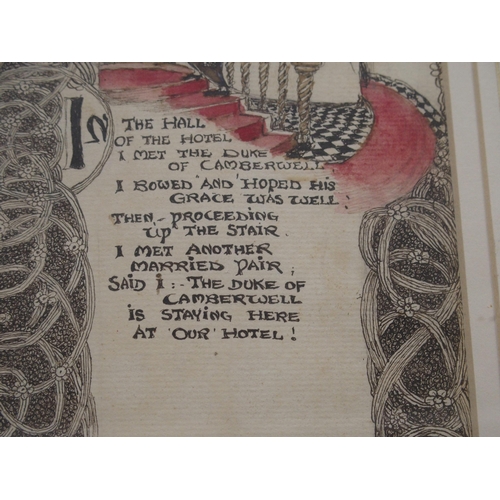 In THE HALL
OF THE HOTEL
I MET THE DUKE
OF CAMBERWELL.
I BOWED AND HOPED HIS
GRACE WAS WELL!
THEN,- PROCEEDING
UP THE STAIR.
I MET ANOTHER
MARRIED PAIR;
SAID I:- THE DUKE OF
CAMBERWELL
IS STAYING HERE
AT 'OUR' HOTEL!